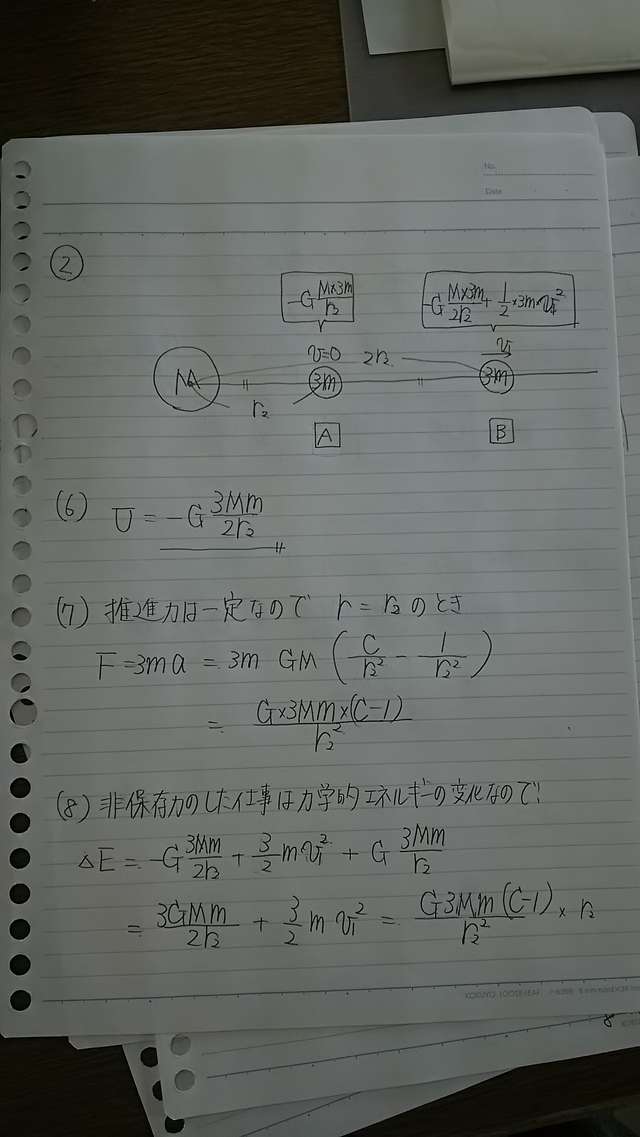 No.
Date
②
-G M×3m/r₂
-G M×3m/2r₂ + 1/2 × 3m × v₁²
M
v=0
3m
2r₂
v₁
3m
r₂
A
B
(6) U = -G 3Mm/2r₂
(7) 推進力は一定なので r = r₂ のとき
F = 3ma = 3m GM (C/r₂² - 1/r₂²)
= G×3Mm×(C-1)/r₂²
(8) 非保存力のした仕事は力学的エネルギーの変化なので、
△E = -G 3Mm/2r₂ + 3/2 m v₁² + G 3Mm/r₂
= 3GMm/2r₂ + 3/2 m v₁² = G3Mm(C-1)/r₂² × r₂
KOKUYO LOOSE-LEAF
8